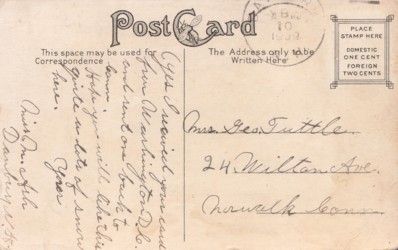 Post Card
This space may be used for
Correspondence
The Address only to be
Written Here
PLACE
STAMP HERE
DOMESTIC
ONE CENT
FOREIGN
TWO CENTS
Yes I received your card
from Washington D.C.
and sent one back to
Hope you will like this
quite a lots of snow
here.
Mrs. Geo. Tuttle
24 Wilton Ave.
Norwalk Conn.
Danbury